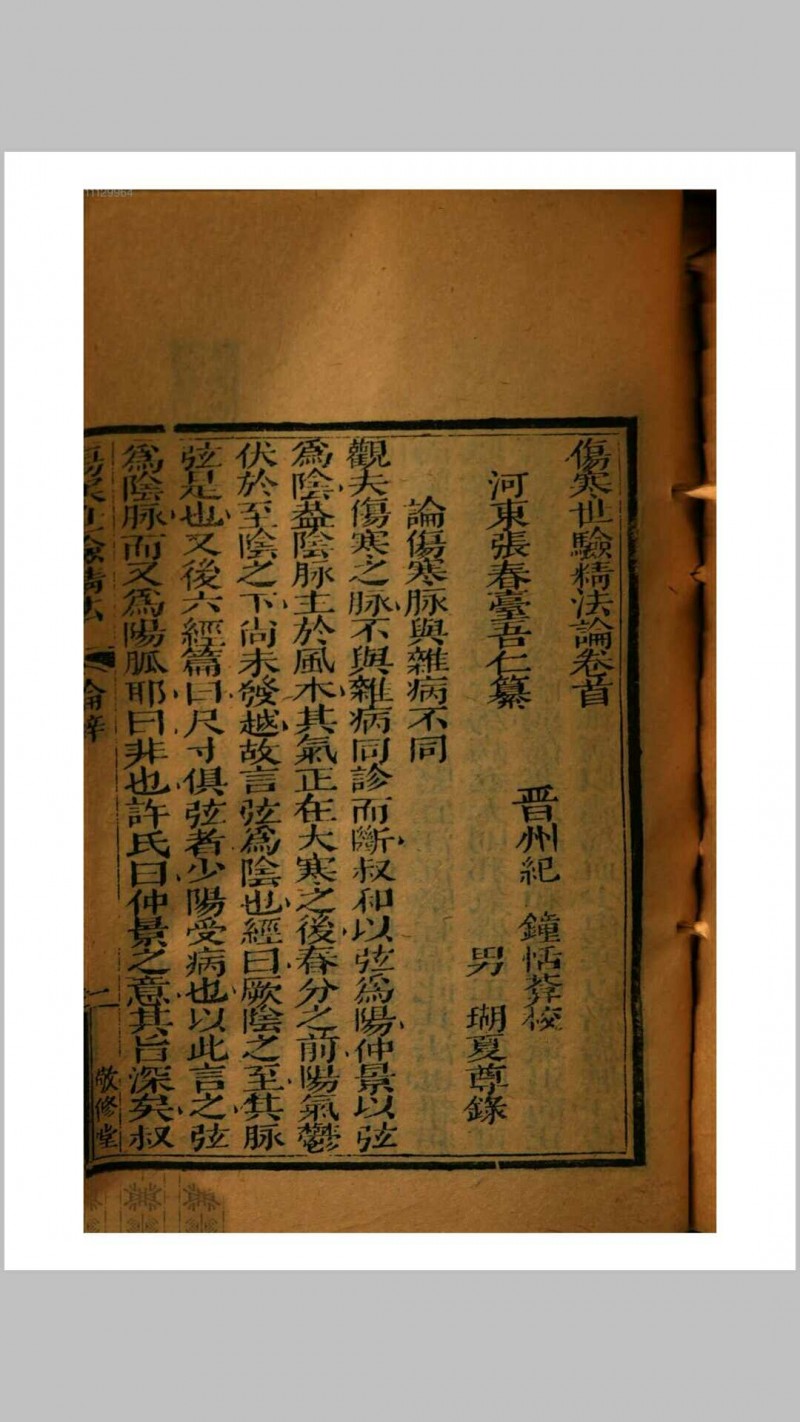 傷寒世驗精法論卷首
河東張春臺吾仁纂
晋州紀 鐘恬葊校
男 瑚夏尊錄
論傷寒脉與雜病不同
觀夫傷寒之脉不與雜病同診而斷叔和以弦爲陽仲景以弦
爲陰葢陰脉主於風木其氣正在大寒之後春分之前陽氣鬱
伏於至陰之下尚未發越故言弦爲陰也經曰厥陰之至其脉
弦是也又後六經篇曰尺寸俱弦者少陽受病也以此言之弦
爲陰脉而又爲陽脈耶曰非也許氏曰仲景之意其旨深矣叔
傷寒世驗精法
論辯
二
敬修堂
11129964